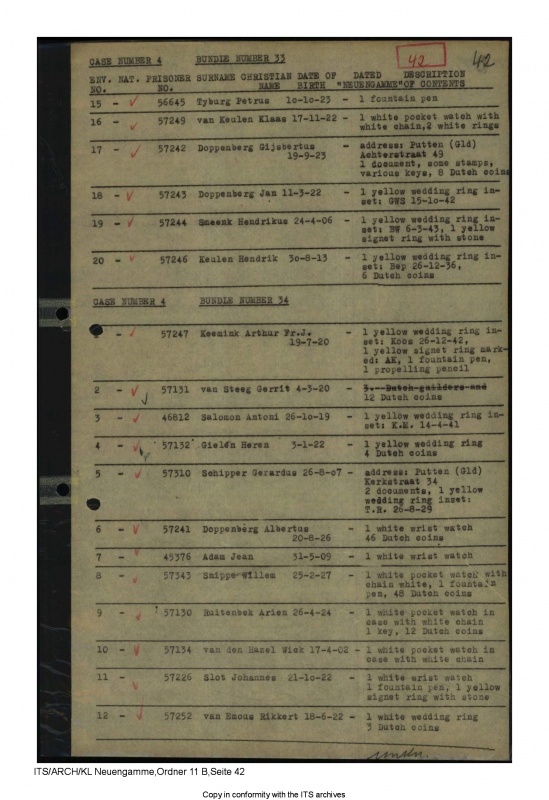 42
42
CASE NUMBER 4 BUNDLE NUMBER 33
ENV. NAT. PRISONER SURNAME CHRISTIAN DATE OF DATED DESCRIPTION
NO. NO. NAME BIRTH "NEUENGAMME" OF CONTENTS
15 - 56645 Tyburg Petrus 10-10-23 - 1 fountain pen
16 - 57249 van Keulen Klaas 17-11-22 - 1 white pocket watch with
white chain,2 white rings
17 - 57242 Doppenberg Gijsbertus - address: Putten (Gld)
19-9-23 Achterstraat 49
1 document, some stamps,
various keys, 8 Dutch coins
18 - 57243 Doppenberg Jan 11-3-22 - 1 yellow wedding ring in-
set: GWS 15-10-42
19 - 57244 Smeenk Hendrikus 24-4-06 - 1 yellow wedding ring in-
set: BW 6-3-43, 1 yellow
signet ring with stone
20 - 57246 Keulen Hendrik 30-8-13 - 1 yellow wedding ring in-
set: Bep 26-12-36,
6 Dutch coins
CASE NUMBER 4 BUNDLE NUMBER 34
- 57247 Keemink Arthur Fr.J. - 1 yellow wedding ring in-
19-7-20 set: Koos 26-12-42,
1 yellow signet ring mark-
ed: AK, 1 fountain pen,
1 propelling pencil
2 - 57131 van Steeg Gerrit 4-3-20 - 3.- Dutch guilders and
12 Dutch coins
3 - 46812 Salomon Antoni 26-10-19 - 1 yellow wedding ring in-
set: K.M. 14-4-41
4 - 57132 Gielen Heren 3-1-22 - 1 yellow wedding ring
4 Dutch coins
5 - 57310 Schipper Gerardus 26-8-07 - address: Putten (Gld)
Kerkstraat 34
2 documents, 1 yellow
wedding ring inset:
T.R. 26-8-29
6 - 57241 Doppenberg Albertus - 1 white wrist watch
20-8-26 46 Dutch coins
7 - 45376 Adam Jean 31-5-09 - 1 white wrist watch
8 - 57343 Snippe Willem 25-2-27 - 1 white pocket watch with
chain white, 1 fountain
pen, 48 Dutch coins
9 - 57130 Ruitenbek Arien 26-4-24 - 1 white pocket watch in
case with white chain
1 key, 12 Dutch coins
10 - 57134 van den Hazel Wick 17-4-02 - 1 white pocket watch in
case with white chain
11 - 57226 Slot Johannes 21-10-22 - 1 white wrist watch
1 fountain pen, 1 yellow
signet ring with stone
12 - 57252 van Emous Rikkert 18-6-22 - 1 white wedding ring
3 Dutch coins
ITS/ARCH/KL Neuengamme,Ordner 11 B,Seite 42
Copy in conformity with the ITS archives